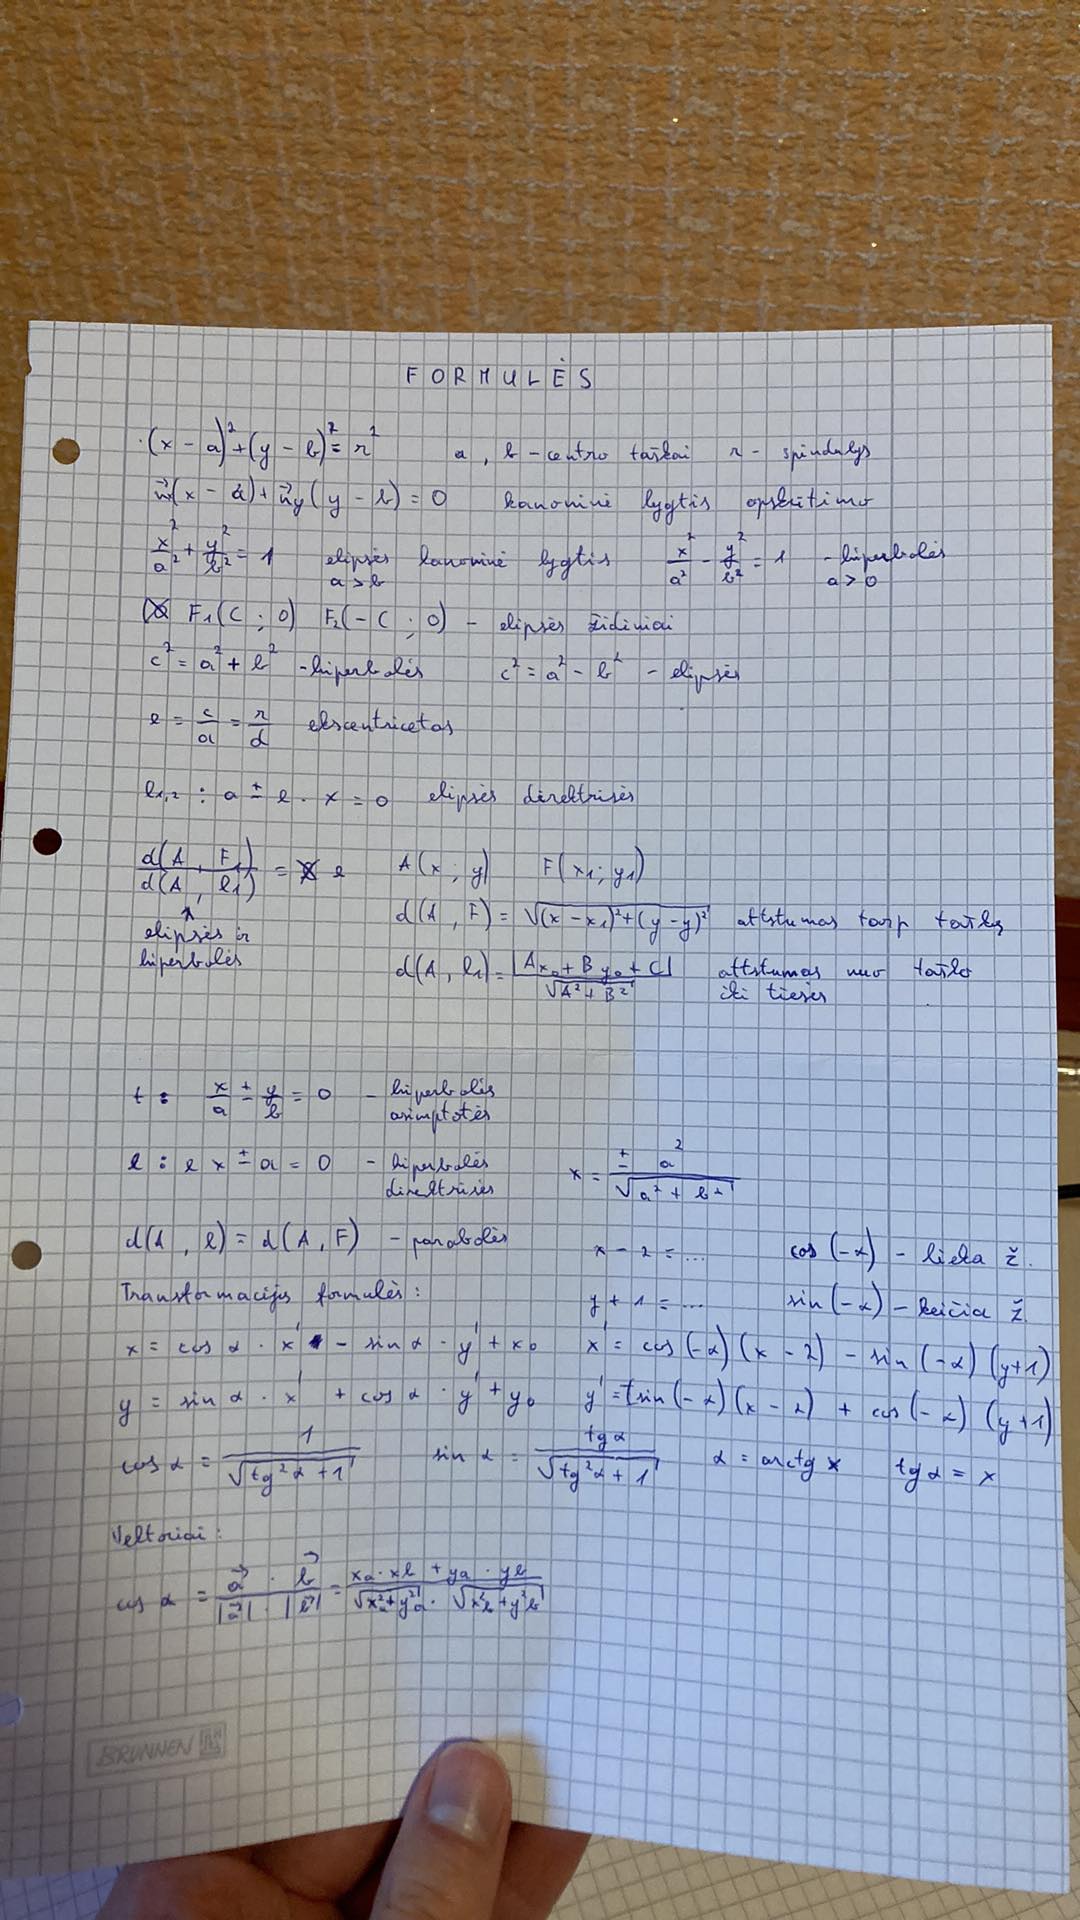 FORMULĖS
(x - a)² + (y - b)² = r² a, b - centro taškai r - spindulys
n⃗(x - a) + n⃗y(y - b) = 0 kanoninė lygtis apskritimo
x²/a² + y²/b² = 1 elipsės kanoninė lygtis a > b x²/a² - y²/b² = 1 - hiperbolės a > 0
F₁(C ; 0) F₂(-C ; 0) - elipsės židiniai
c² = a² + b² - hiperbolės c² = a² - b² - elipsės
e = c/a = r/d ekscentricetas
l₁,₂ : a ± e · x = 0 elipsės direktrisės
d(A, F₁)/d(A, l₁) = e A(x ; y) F(x₁; y₁)
↑ elipsės ir hiperbolės
d(A, F) = √((x - x₁)² + (y - y)²) attstumas tarp taškų
d(A, l₁) = |Ax₀ + By₀ + C|/√(A² + B²) attstumas nuo taško iki tiesės
t : x/a ± y/b = 0 - hiperbolės asimptotės
l : e x ± a = 0 - hiperbolės direktrisės x = ± a²/√(a² + b²)
d(A, l) = d(A, F) - parabolės
x - 2 = ... cos(-α) - lieka ž.
Transformacijų formulės:
y + 1 = ... sin(-α) - keičia ž.
x = cos α · x' - sin α · y' + x₀ x' = cos(-α)(x - 2) - sin(-α)(y+1)
y = sin α · x' + cos α · y' + y₀ y' = sin(-α)(x - 2) + cos(-α)(y+1)
cos α = 1/√(tg²α + 1) sin α = tgα/√(tg²α + 1) α = arctg x tg α = x
Vektoriai:
cos α = a⃗ · b⃗/|a⃗| · |b⃗| = xa · xb + ya · yb/√(x²a + y²a) · √(x²b + y²b)
BRUNNEN